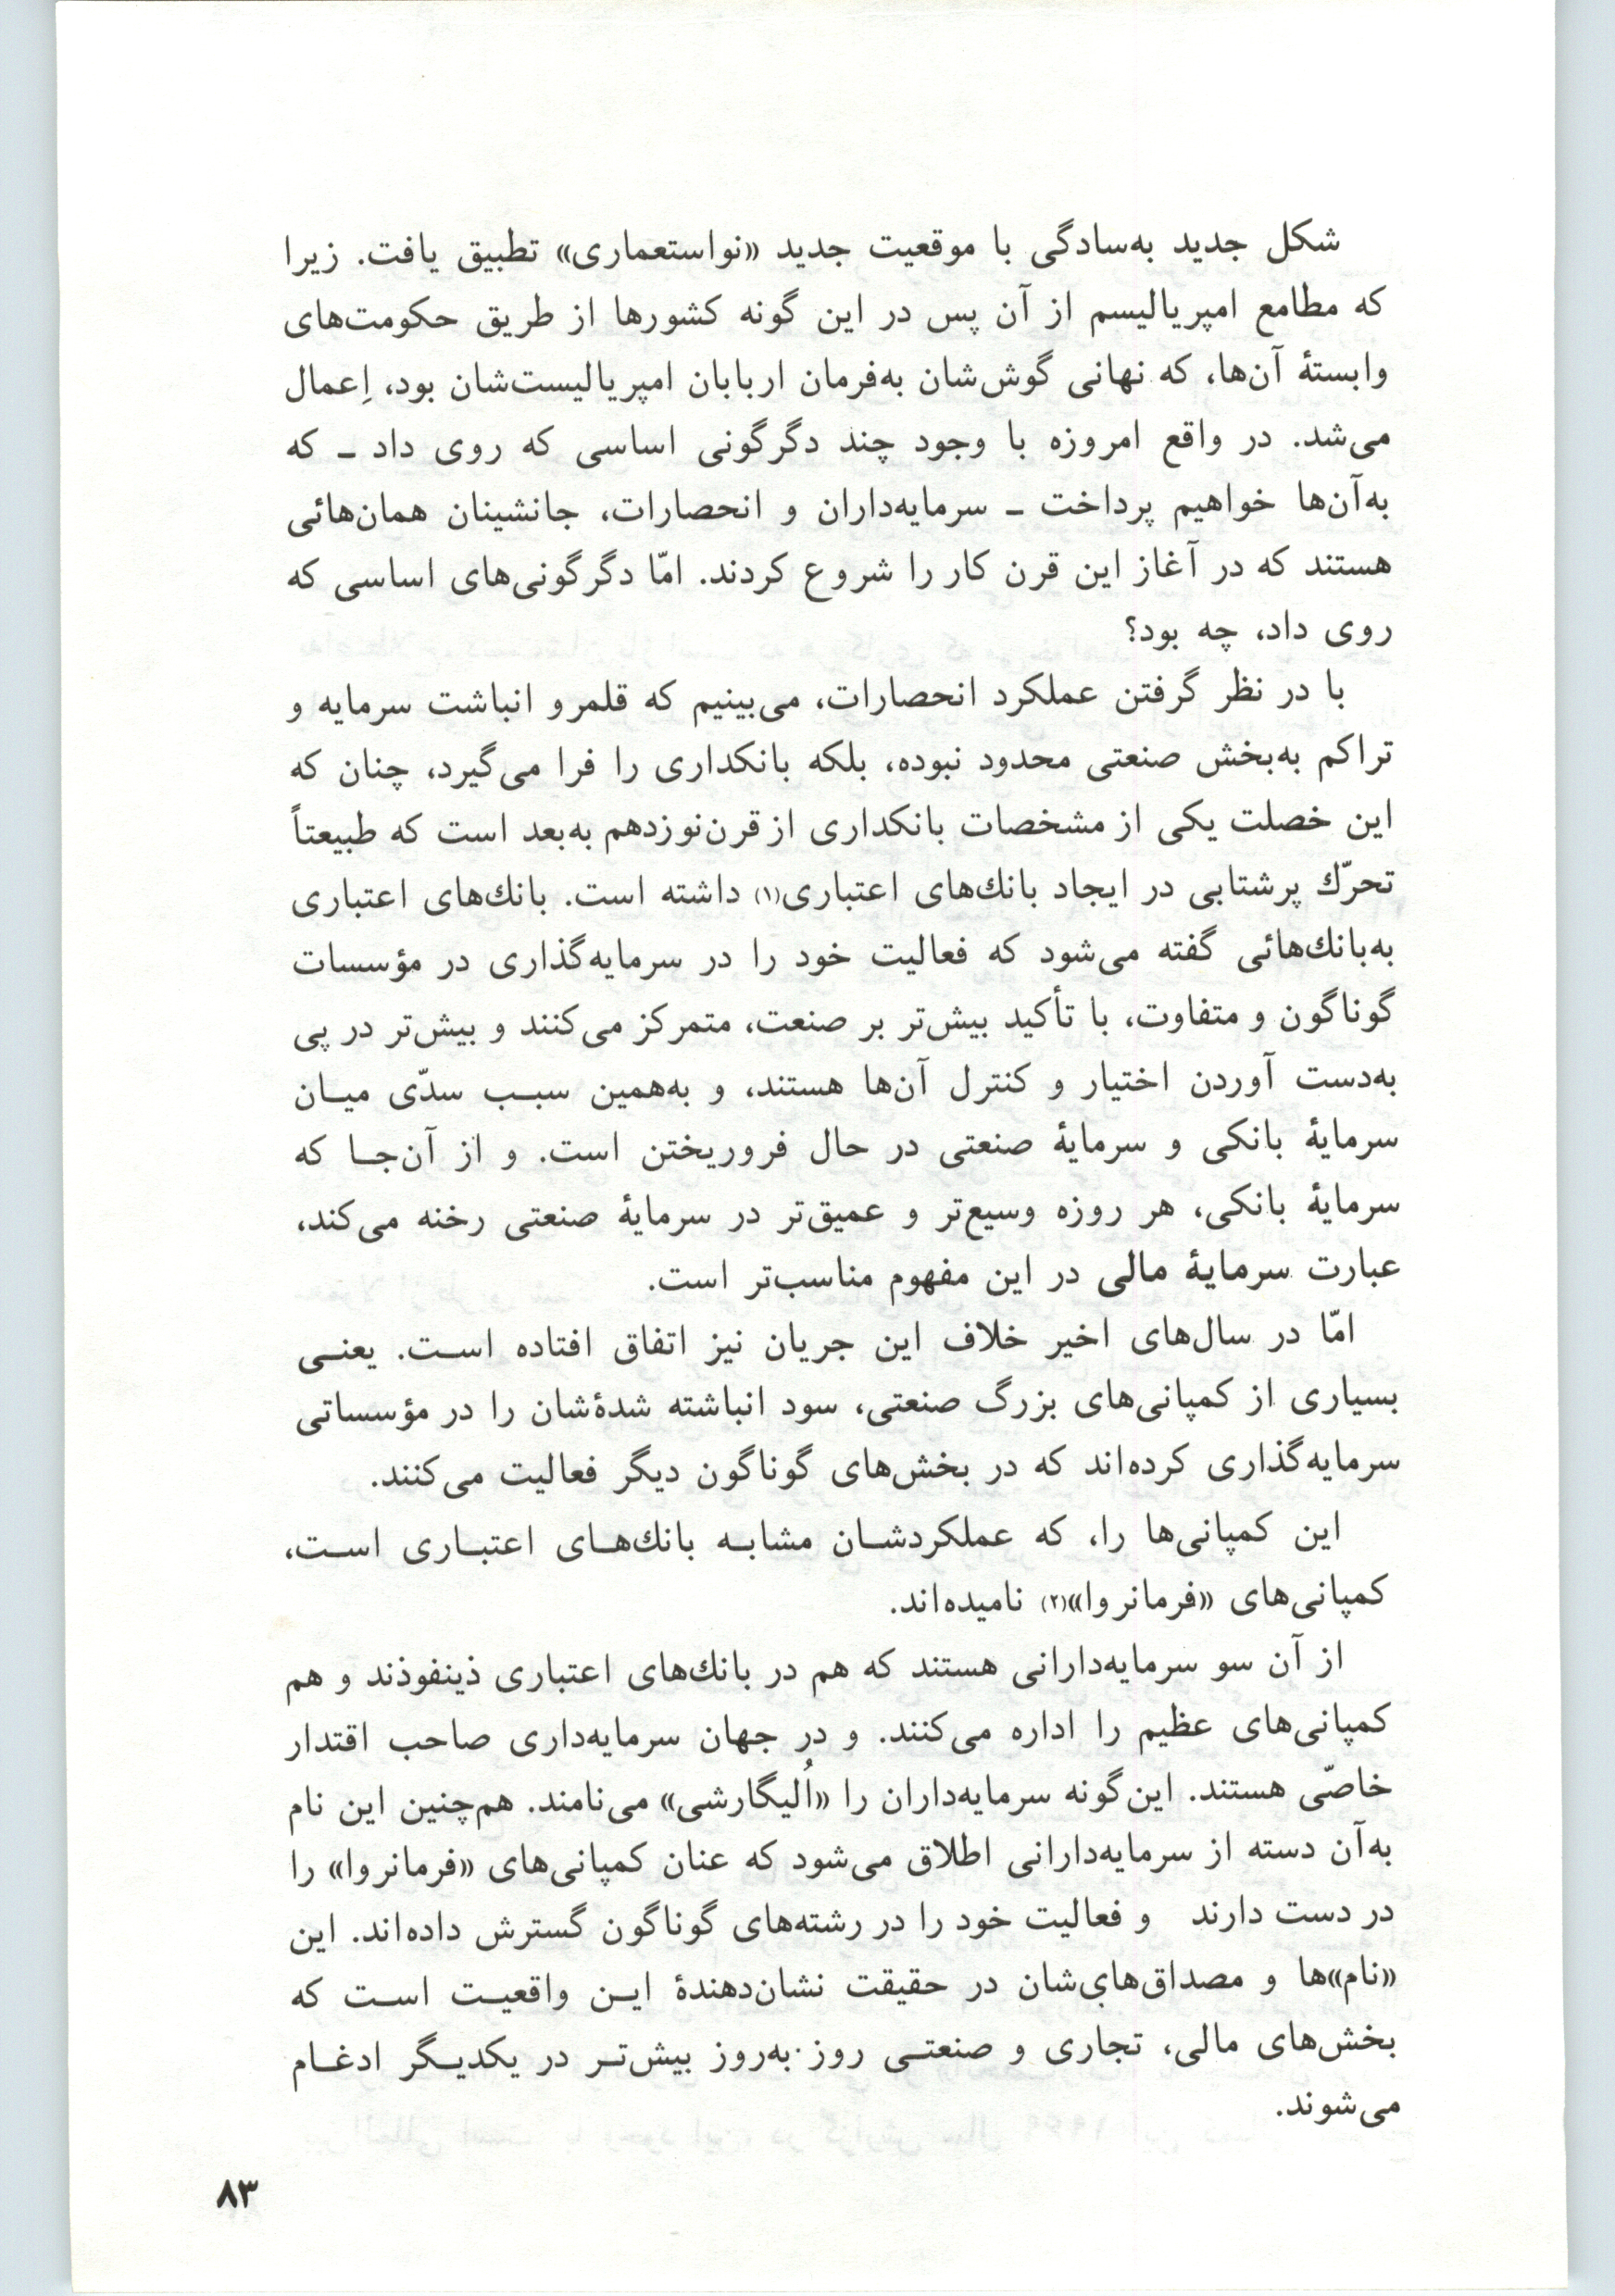 شکل جدید به‌سادگی با موقعیت جدید «نواستعماری» تطبیق یافت. زیرا
که مطامع امپریالیسم از آن پس در این گونه کشورها از طریق حکومت‌های
وابستهٔ آن‌ها، که نهانی گوش‌شان به‌فرمان اربابان امپریالیست‌شان بود، اِعمال
می‌شد. در واقع امروزه با وجود چند دگرگونی اساسی که روی داد ـ که
به‌آن‌ها خواهیم پرداخت ـ سرمایه‌داران و انحصارات، جانشینان همان‌هائی
هستند که در آغاز این قرن کار را شروع کردند. امّا دگرگونی‌های اساسی که
روی داد، چه بود؟
با در نظر گرفتن عملکرد انحصارات، می‌بینیم که قلمرو انباشت سرمایه و
تراکم به‌بخش صنعتی محدود نبوده، بلکه بانکداری را فرا می‌گیرد، چنان که
این خصلت یکی از مشخصات بانکداری از قرن‌نوزدهم به‌بعد است که طبیعتاً
تحرّك پرشتابی در ایجاد بانك‌های اعتباری(۱) داشته است. بانك‌های اعتباری
به‌بانك‌هائی گفته می‌شود که فعالیت خود را در سرمایه‌گذاری در مؤسسات
گوناگون و متفاوت، با تأکید بیش‌تر بر صنعت، متمرکز می‌کنند و بیش‌تر در پی
به‌دست آوردن اختیار و کنترل آن‌ها هستند، و به‌همین سبـب سدّی میـان
سرمایهٔ بانکی و سرمایهٔ صنعتی در حال فروریختن است. و از آن‌جـا که
سرمایهٔ بانکی، هر روزه وسیع‌تر و عمیق‌تر در سرمایهٔ صنعتی رخنه می‌کند،
عبارت سرمایهٔ مالی در این مفهوم مناسب‌تر است.
امّا در سال‌های اخیر خلاف این جریان نیز اتفاق افتاده اسـت. یعنـی
بسیاری از کمپانی‌های بزرگ صنعتی، سود انباشته شدهٔ‌شان را در مؤسساتی
سرمایه‌گذاری کرده‌اند که در بخش‌های گوناگون دیگر فعالیت می‌کنند.
این کمپانی‌ها را، که عملکردشـان مشابـه بانك‌هـای اعتبـاری اسـت،
کمپانی‌های «فرمانروا»(۲) نامیده‌اند.
از آن سو سرمایه‌دارانی هستند که هم در بانك‌های اعتباری ذینفوذند و هم
کمپانی‌های عظیم را اداره می‌کنند. و در جهان سرمایه‌داری صاحب اقتدار
خاصّی هستند. این‌گونه سرمایه‌داران را «اُلیگارشی» می‌نامند. هم‌چنین این نام
به‌آن دسته از سرمایه‌دارانی اطلاق می‌شود که عنان کمپانی‌های «فرمانروا» را
در دست دارند و فعالیت خود را در رشته‌های گوناگون گسترش داده‌اند. این
«نام»ها و مصداق‌های‌شان در حقیقت نشان‌دهندهٔ ایـن واقعیـت اسـت که
بخش‌های مالی، تجاری و صنعتـی روز به‌روز بیش‌تـر در یکدیـگر ادغـام
می‌شوند.
۸۳